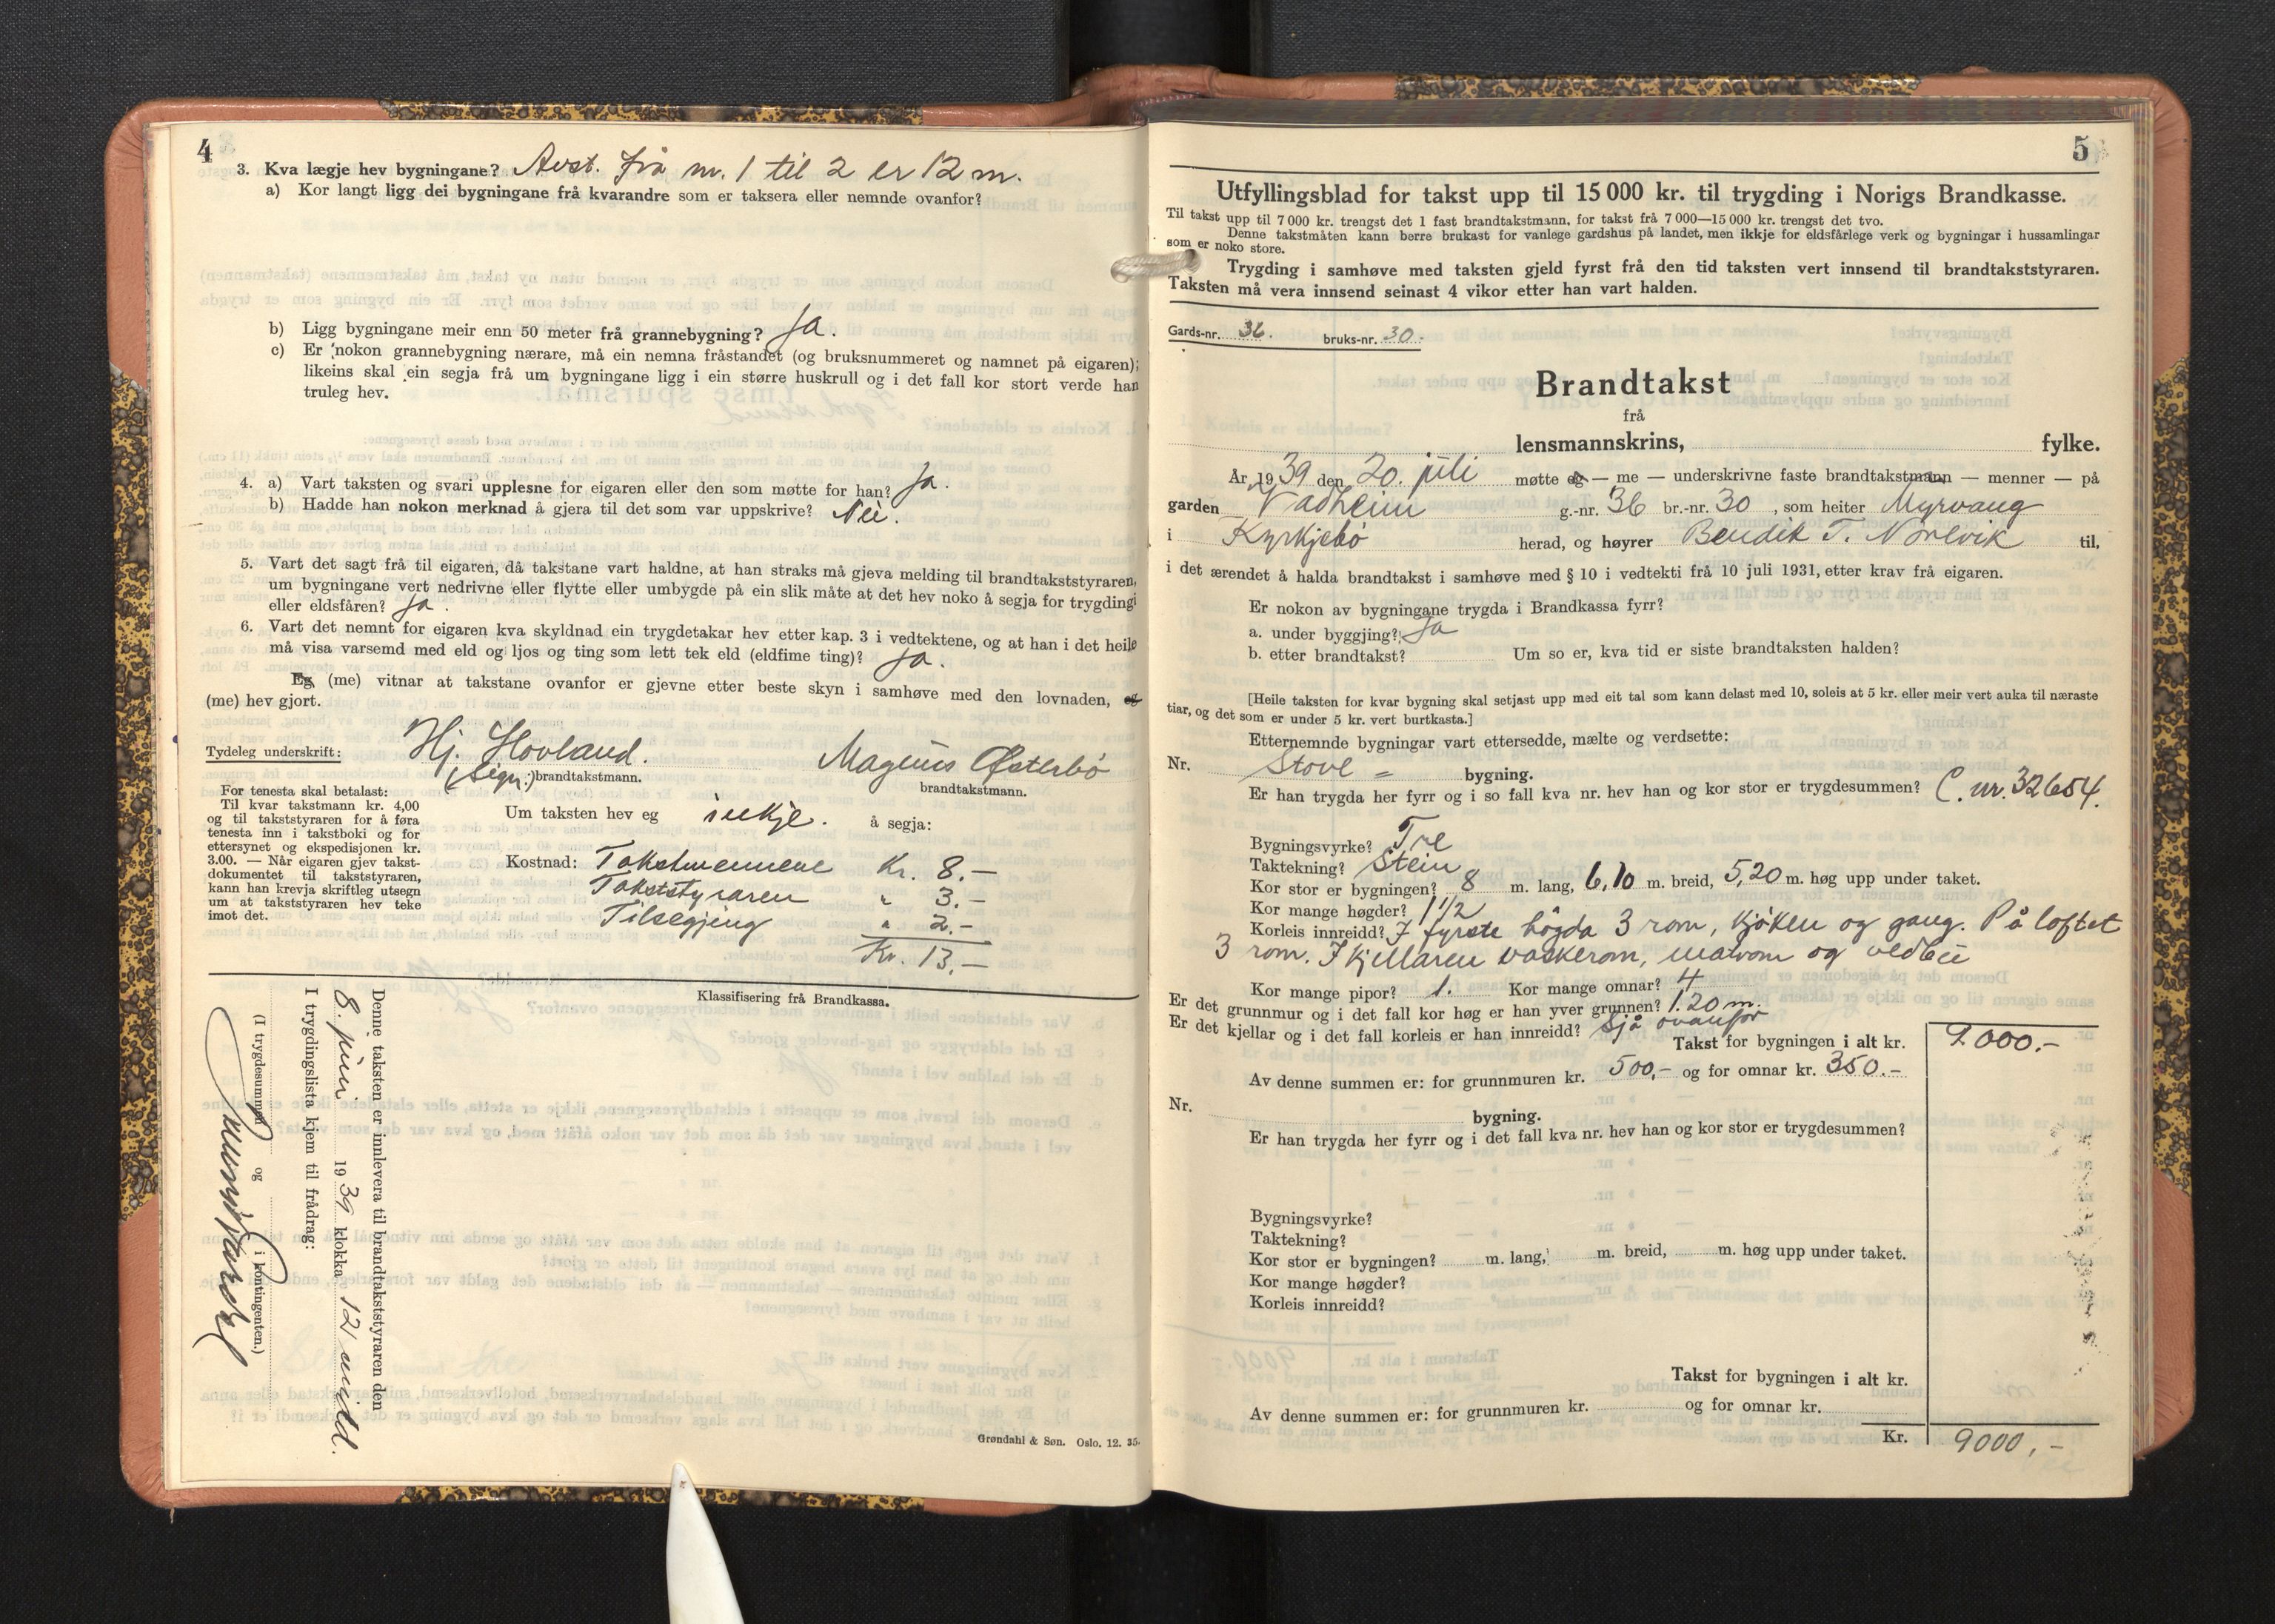 4
3. Kva lægje hev bygningane? Avst. frå nr. 1 til 2 er 12 m.
a) Kor langt ligg dei bygningane frå kvarandre som er taksera eller nemnde ovanfor?
b) Ligg bygningane meir enn 50 meter frå grannebygning? Ja.
c) Er nokon grannebygning nærare, må ein nemna fråstandet (og bruksnummeret og namnet på eigaren);
likeins skal ein segja frå um bygningane ligg i ein større huskrull og i det fall kor stort verde han
truleg hev.
4. a) Vart taksten og svari upplesne for eigaren eller den som møtte for han? Ja.
b) Hadde han nokon merknad å gjera til det som var uppskrive? Nei.
5. Vart det sagt frå til eigaren, då takstane vart haldne, at han straks må gjeva melding til brandtakststyraren,
um bygningane vert nedrivne eller flytte eller umbygde på ein slik måte at det hev noko å segja for trygdingi
eller eldsfåren? Ja.
6. Vart det nemnt for eigaren kva skyldnad ein trygdetakar hev etter kap. 3 i vedtektene, og at han i det heile
må visa varsemd med eld og ljos og ting som lett tek eld (eldfime ting)? Ja.
Eg (me) vitnar at takstane ovanfor er gjevne etter beste skyn i samhøve med den lovnaden, eg
(me) hev gjort.
Tydeleg underskrift: Hj. Hovland. Magnus Østerbø
(Sign.) brandtakstmann. brandtakstmann.
For tenesta skal betalast:
Til kvar takstmann kr. 4,00
og til takststyraren for å føra
tenesta inn i takstboki og for
ettersynet og ekspedisjonen kr.
3.00. — Når eigaren gjev takst-
dokumentet til takststyraren,
kann han krevja skriftleg utsegn
um at takststyraren hev teke
imot det.
Um taksten hev eg inkje. å segja:
Kostnad: Takstmennene Kr. 8.—
Takststyraren " 3.—
Tilsegjing " 2.—
Kr. 13.—
Klassifisering frå Brandkassa.
Denne taksten er innlevera til brandtakststyraren den
8. juni 1939 klokka 12 midd.
I trygdingslista kjem til frådrag:
(I trygdesummen og i kontingenten.)
Grøndahl & Søn. Oslo. 12. 35.
5
Utfyllingsblad for takst upp til 15 000 kr. til trygding i Norigs Brandkasse.
Til takst upp til 7 000 kr. trengst det 1 fast brandtakstmann, for takst frå 7 000—15 000 kr. trengst det tvo.
Denne takstmåten kann berre brukast for vanlege gardshus på landet, men ikkje for eldsfårlege verk og bygningar i hussamlingar
som er noko store.
Trygding i samhøve med taksten gjeld fyrst frå den tid taksten vert innsend til brandtakststyraren.
Taksten må vera innsend seinast 4 vikor etter han vart halden.
Gards-nr. 36. bruks-nr. 30.
Brandtakst
frå
lensmannskrins, fylke.
År 1939 den 20. juli møtte eg — me — underskrivne faste brandtakstmann — menner — på
garden Vadheim g.-nr. 36 br.-nr. 30, som heiter Myrvang
i Kyrkjebø herad, og høyrer Bendik T. Nörlvik til,
i det ærendet å halda brandtakst i samhøve med § 10 i vedtekti frå 10 juli 1931, etter krav frå eigaren.
Er nokon av bygningane trygda i Brandkassa fyrr?
a. under byggjing? Ja
b. etter brandtakst? Um so er, kva tid er siste brandtaksten halden?
[Heile taksten for kvar bygning skal setjast upp med eit tal som kann delast med 10, soleis at 5 kr. eller meir vert auka til næraste
tiar, og det som er under 5 kr. vert burtkasta.]
Etternemnde bygningar vart ettersedde, mælte og verdsette:
Nr. Stove = bygning.
Er han trygda her fyrr og i so fall kva nr. hev han og kor stor er trygdesummen? C. nr. 32654.
Bygningsvyrke? Tre
Taktekning? Stein
Kor stor er bygningen? 8 m. lang, 6,10 m. breid, 5,20 m. høg upp under taket.
Kor mange høgder? 1 1/2
Korleis innreidd? I fyrste högda 3 rom, kjöken og gang. På loftet
3 rom. I kjellaren vaskerom, matrom og vedbu
Kor mange pipor? 1. Kor mange omnar? 4
Er det grunnmur og i det fall kor høg er han yver grunnen? 1.20 m.
Er det kjellar og i det fall korleis er han innreidd? Sjå ovanfor
Takst for bygningen i alt kr. 9000.-
Av denne summen er: for grunnmuren kr. 500,- og for omnar kr. 350.-
Nr. bygning.
Er han trygda her fyrr og i det fall kva nr. hev han og kor stor er trygdesummen?
Bygningsvyrke?
Taktekning?
Kor stor er bygningen? m. lang, m. breid, m. høg upp under taket.
Kor mange høgder?
Korleis innreidd?
Takst for bygningen i alt kr.
Av denne summen er: for grunnmuren kr. og for omnar kr.
Kr. 9000,-